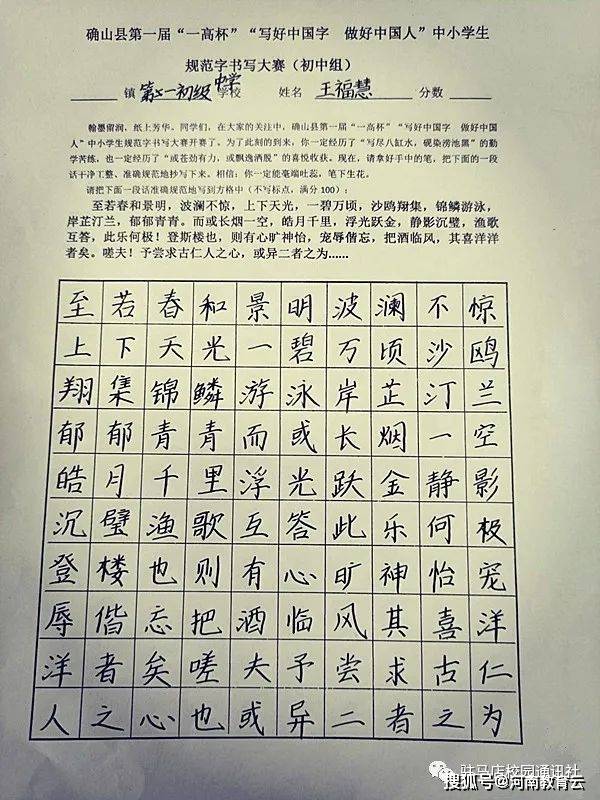 确山县第一届“一高杯”“写好中国字 做好中国人”中小学生
规范字书写大赛（初中组）
镇 第一初级中学 学校 姓名 王福慧 分数
翰墨留润，纸上芳华。同学们，在大家的关注中，确山县第一届“一高杯”“写好中国字 做好中国
人”中小学生规范字书写大赛开赛了。为了此刻的到来，你一定经历了“写尽八缸水，砚染涝池黑”的勤
学苦练，也一定经历了“或苍劲有力，或飘逸洒脱”的喜悦收获。现在，请拿好手中的笔，把下面的一段
话干净工整、准确规范地抄写下来。相信：你一定能毫端吐蕊，笔下生花。
请把下面一段话准确规范地写到方格中（不写标点，满分100）：
至若春和景明，波澜不惊，上下天光，一碧万顷，沙鸥翔集，锦鳞游泳，
岸芷汀兰，郁郁青青。而或长烟一空，皓月千里，浮光跃金，静影沉璧，渔歌
互答，此乐何极！登斯楼也，则有心旷神怡，宠辱偕忘，把酒临风，其喜洋洋
者矣。嗟夫！予尝求古仁人之心，或异二者之为……
至若春和景明波澜不惊
上下天光一碧万顷沙鸥
翔集锦鳞游泳岸芷汀兰
郁郁青青而或长烟一空
皓月千里浮光跃金静影
沉璧渔歌互答此乐何极
登楼也则有心旷神怡宠
辱偕忘把酒临风其喜洋
洋者矣嗟夫予尝求古仁
人之心也或异二者之为
驻马店校园通讯社
搜狐号@河南教育云